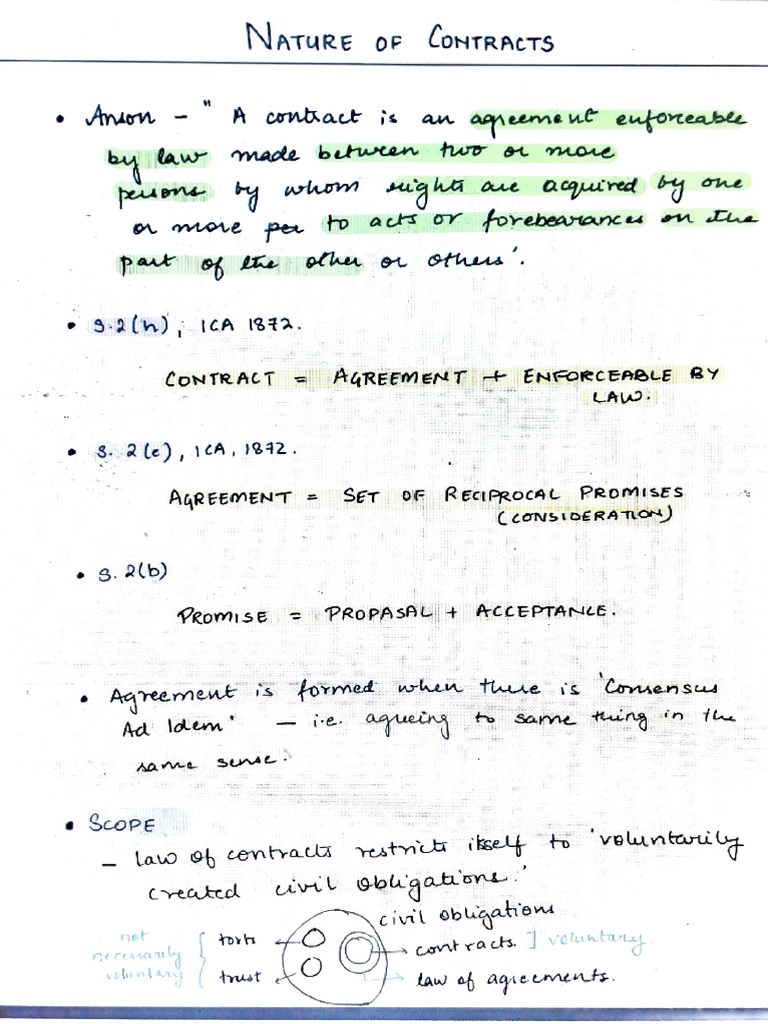 NATURE OF CONTRACTS
• Anson - " A contract is an agreement enforceable
by law made between two or more
persons by whom rights are acquired by one
or more per to acts or forebearances on the
part of the other or others'.
• S.2(h), ICA 1872.
CONTRACT = AGREEMENT + ENFORCEABLE BY
LAW.
• S. 2(e), ICA, 1872.
AGREEMENT = SET OF RECIPROCAL PROMISES
(CONSIDERATION)
• S. 2(b)
PROMISE = PROPASAL + ACCEPTANCE.
• Agreement is formed when there is 'Consensus
Ad Idem' - i.e. agreeing to same thing in the
same sense.
• SCOPE
- law of contracts restricts itself to 'voluntarily
created civil obligations.'
civil obligations
not
necessarily
voluntary
torts
trust
contracts. ] voluntary
law of agreements.